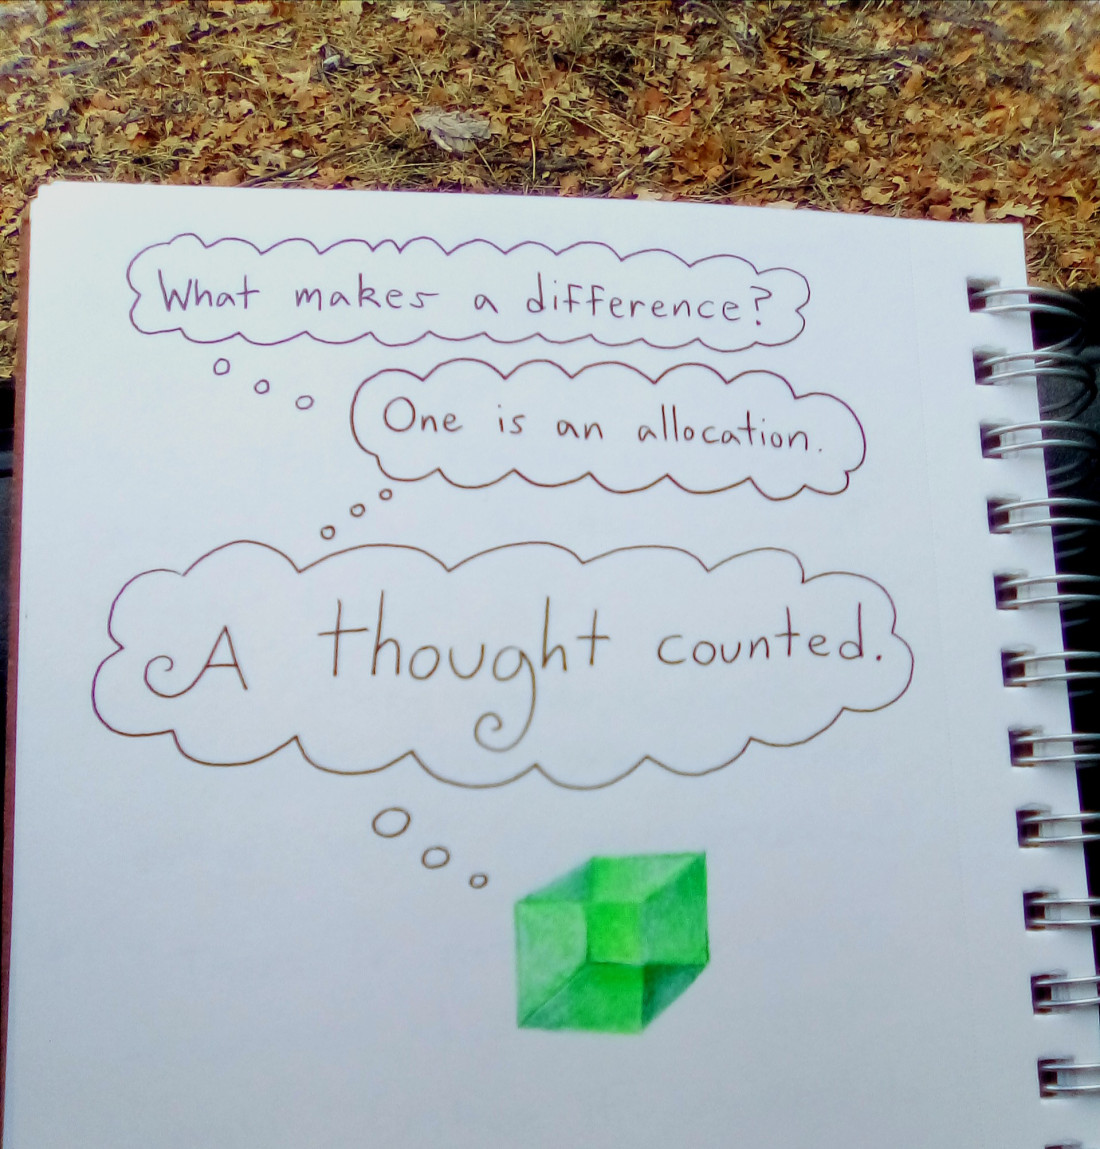 What makes a difference?
One is an allocation.
A thought counted.